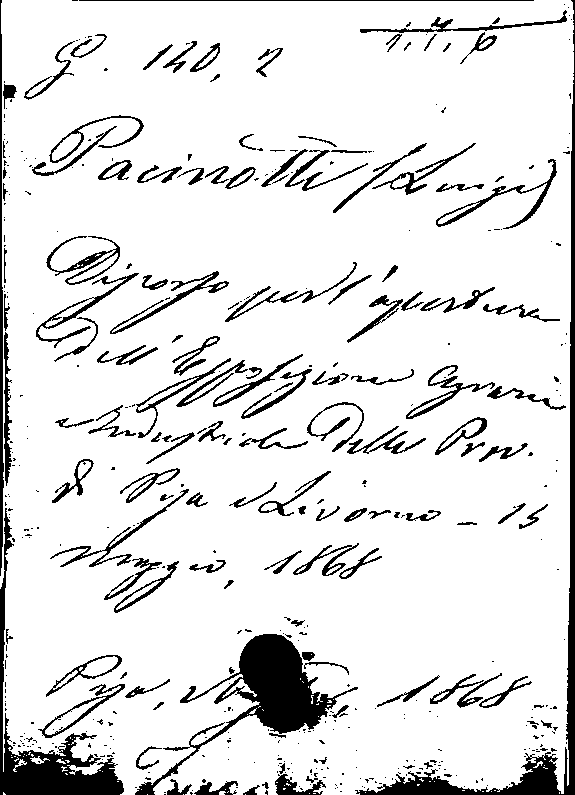 G. 120, 2
1.7.6
Pacinotti (Luigi)
Discorso per l'apertura
dell'Esposizione Agraria
e Industriale delle Prov.
di Pisa e Livorno - 15
Maggio, 1868
Pisa, 1868